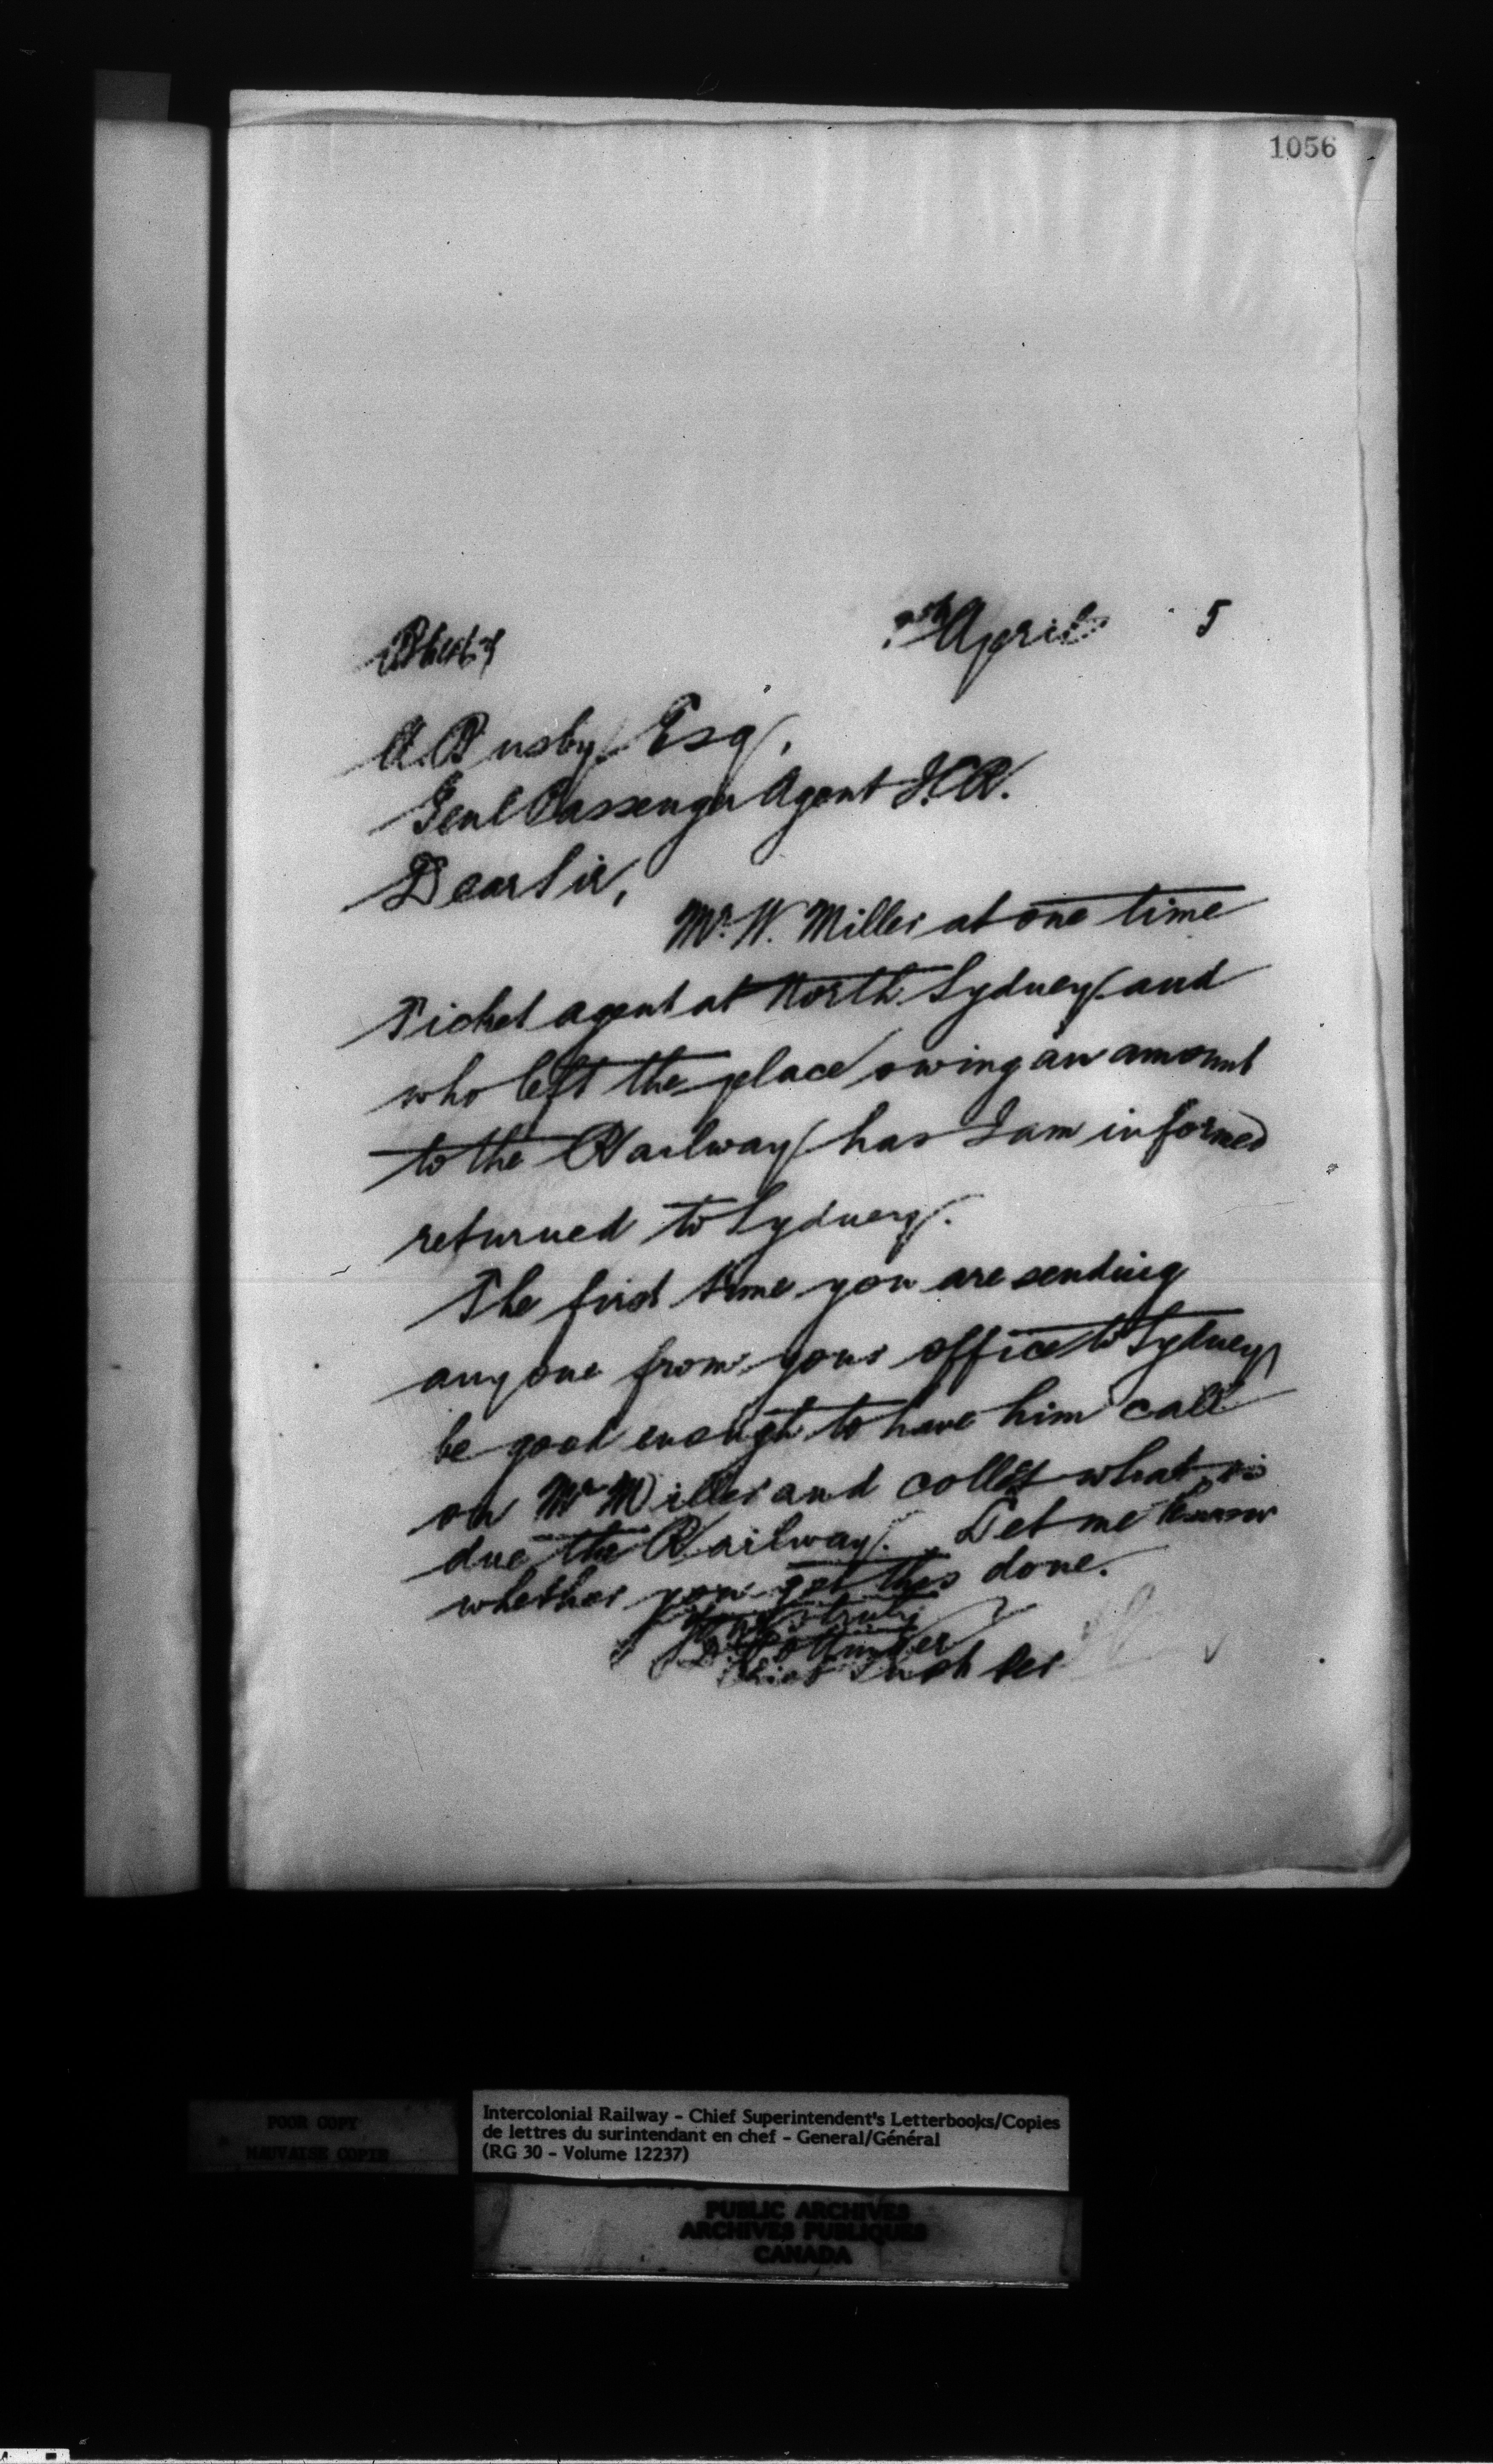 1056
April 5
A. Busby Esq,
Genl Passenger Agent I.C.R.
Dear Sir,
Mr. W. Miller at one time
Ticket agent at North Sydney and
who left the place owing an amount
to the Railway has I am informed
returned to Sydney.
The first time you are sending
any one from your office to Sydney
be good enough to have him call
on Mr Miller and collect what is
due the Railway. Let me know
whether you get this done.
Yours truly
D Pottinger
Chief Supt
POOR COPY
MAUVAISE COPIE
Intercolonial Railway - Chief Superintendent's Letterbooks/Copies
de lettres du surintendant en chef - General/Général
(RG 30 - Volume 12237)
PUBLIC ARCHIVES
ARCHIVES PUBLIQUES
CANADA